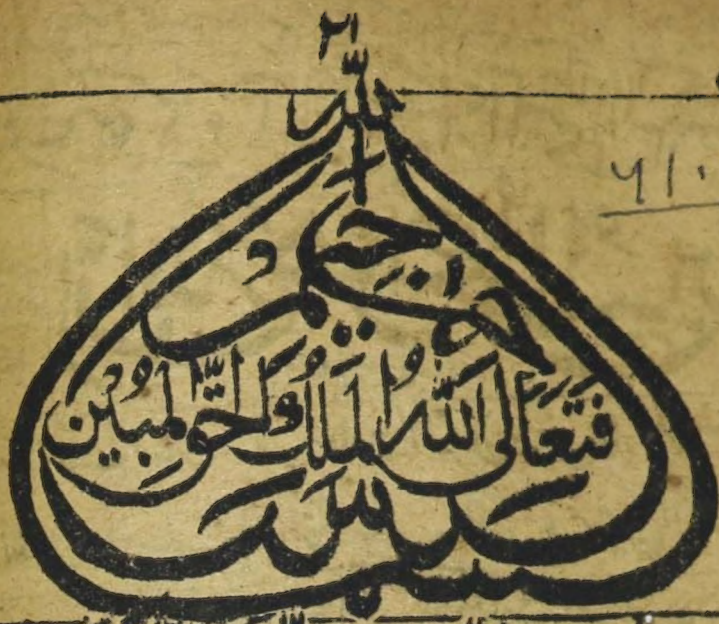 ٢١
بسم الله الرحمن الرحيم
فَتَعَالَى اللّٰهُ المَلِكُ الحَقُّ المُبِين